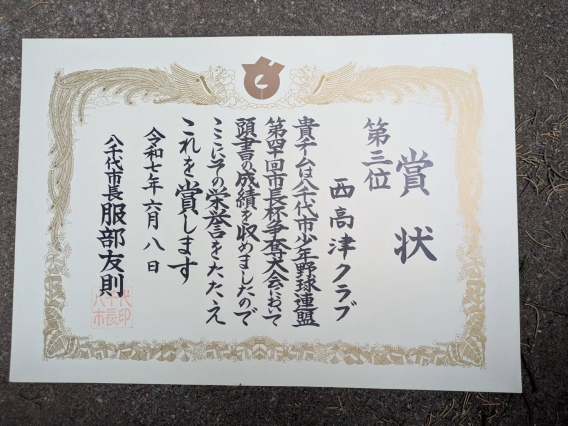 賞状
第三位
西高津クラブ
貴チームは八千代市少年野球連盟
第四十回市長杯争奪大会において
頭書の成績を収めましたので
ここにその栄誉をたたえ
これを賞します
令和七年六月八日
八千代市長服部友則
八千代
市長印